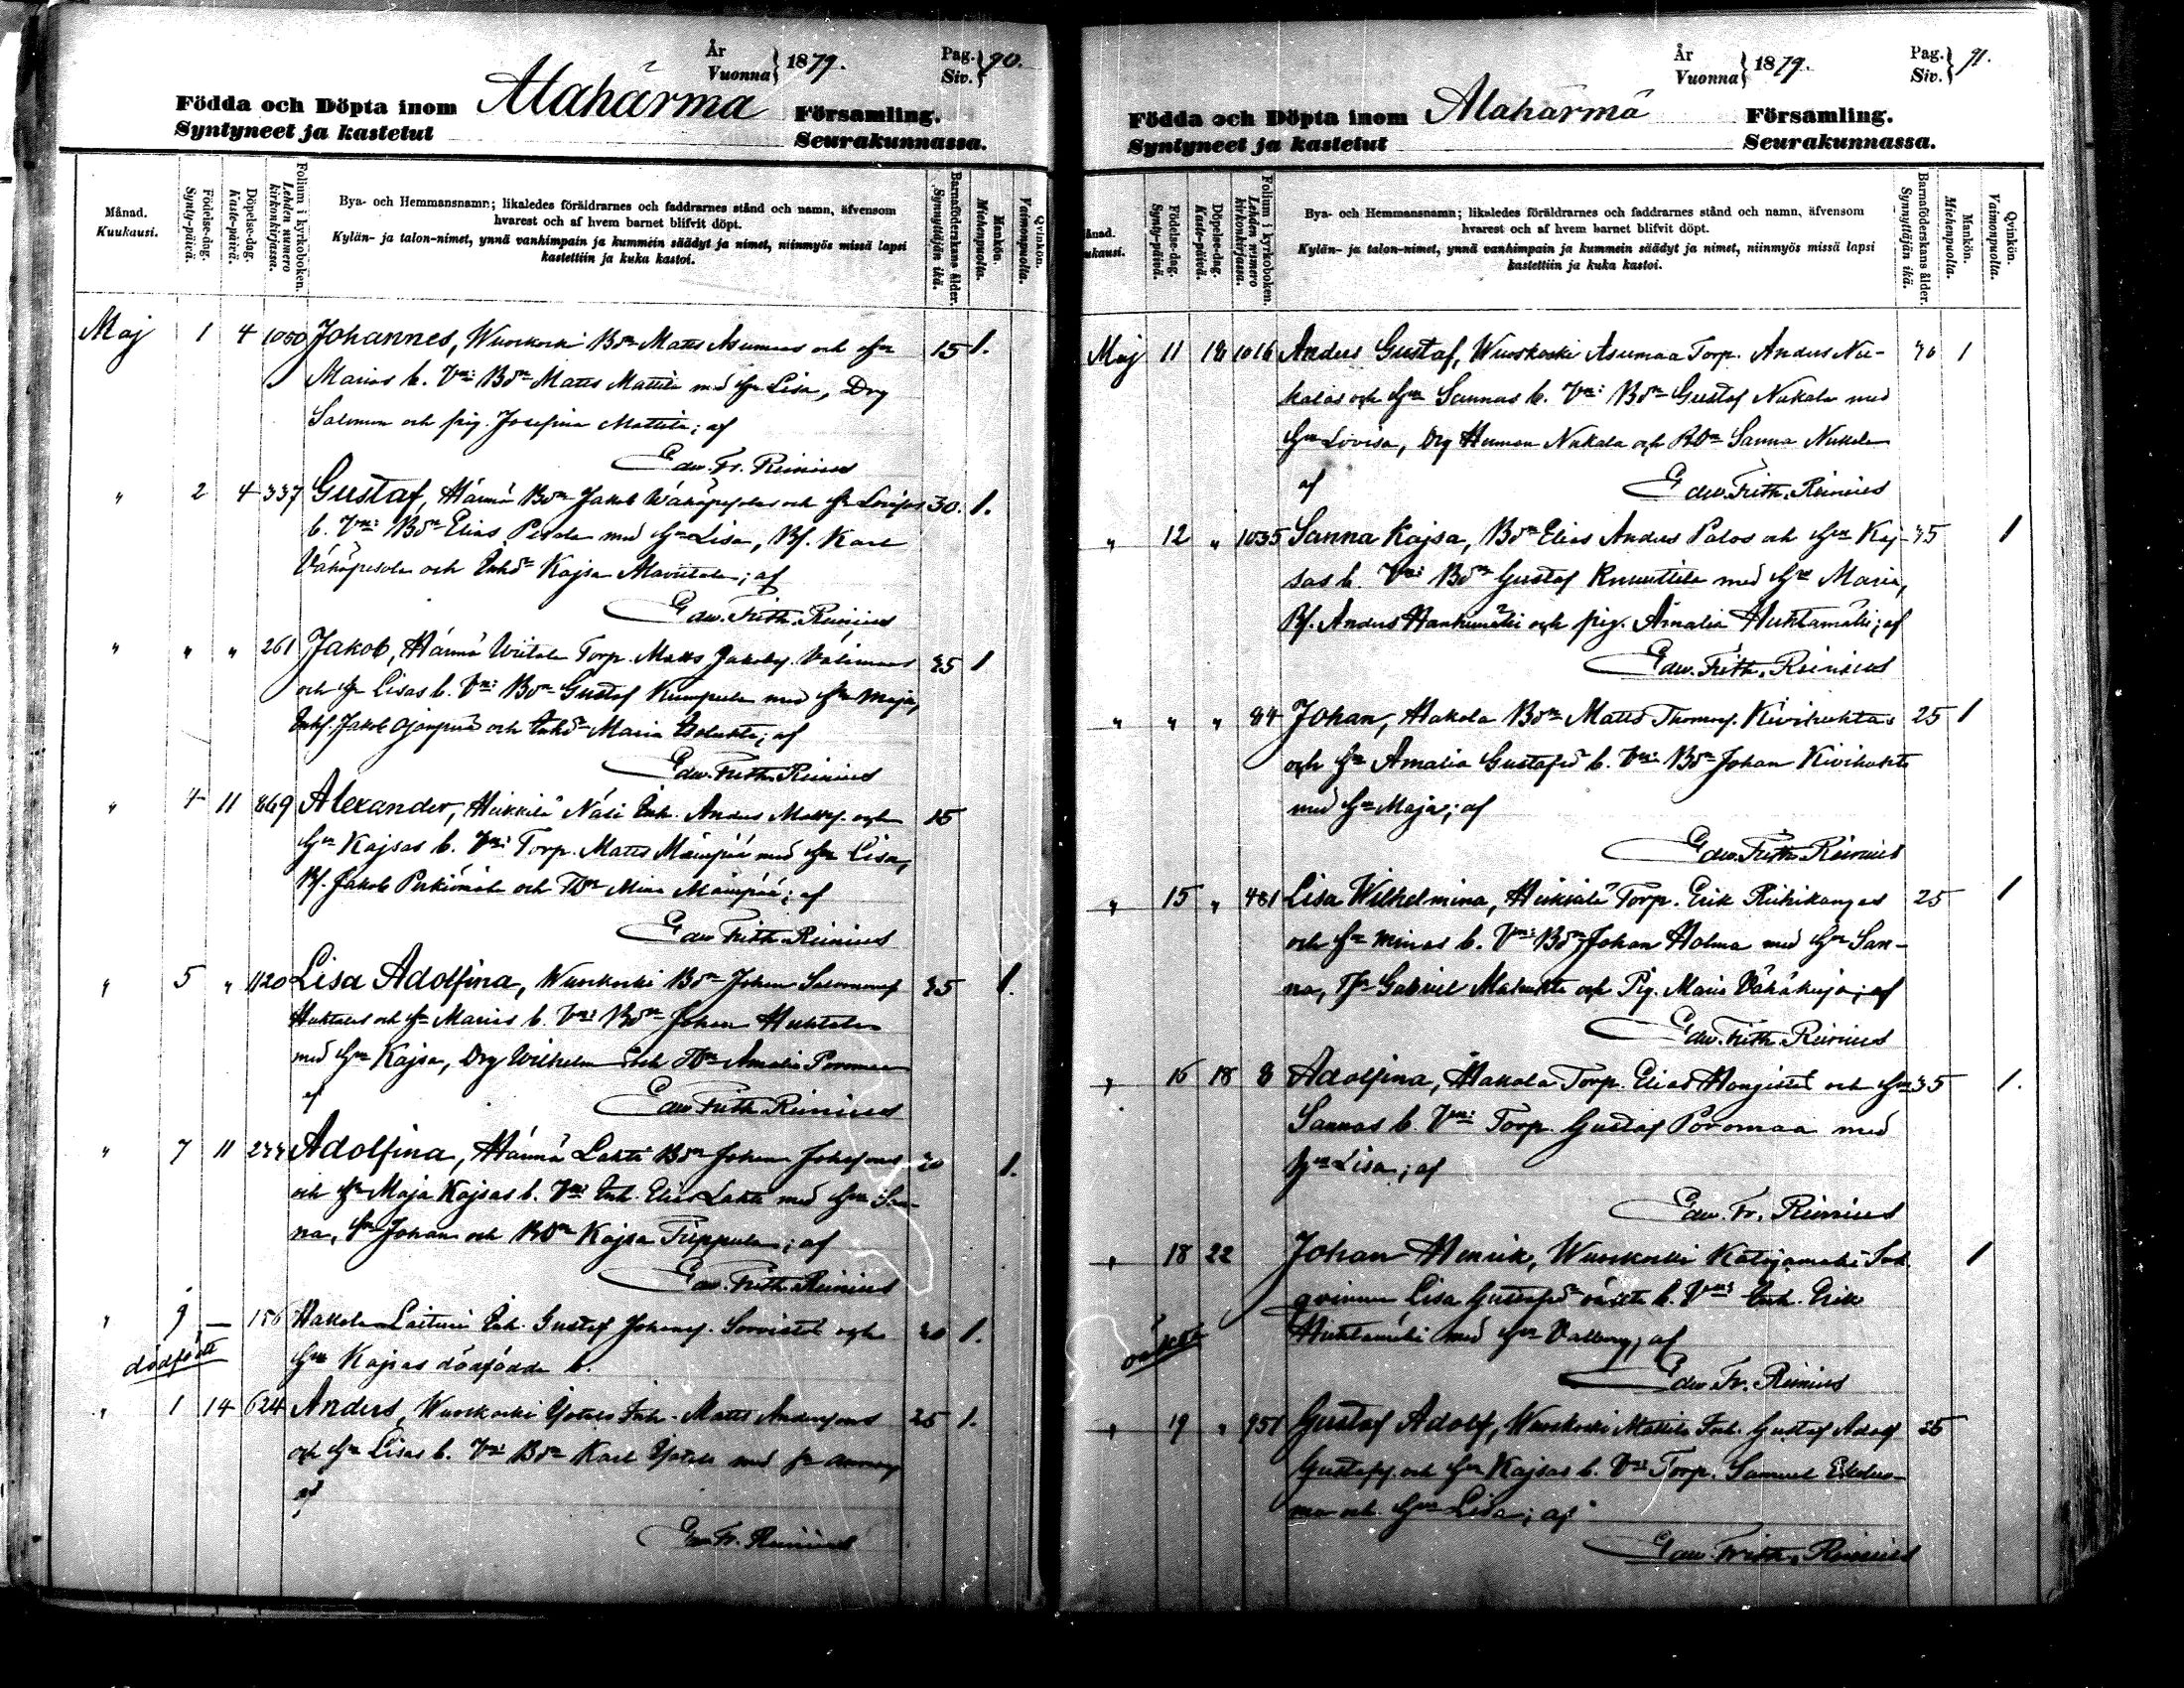 År
Vuonna } 1879.
Pag.
Siv. } 90.
Födda och Döpta inom Alahärmä Församling.
Syntyneet ja kastetut Seurakunnassa.
Månad.
Kuukausi.
Födelse-dag.
Synty-päivä.
Döpelse-dag.
Kaste-päivä.
Folium i kyrkoboken.
Lehden numero
kirkonkirjassa.
Bya- och Hemmansnamn; likaledes föräldrarnes och faddrarnes stånd och namn, äfvensom
hvarest och af hvem barnet blifvit döpt.
Kylän- ja talon-nimet, ynnä vanhimpain ja kummein säädyt ja nimet, niinmyös missä lapsi
kastettiin ja kuka kastoi.
Barnaföderskans ålder.
Synnyttäjän ikä.
Mankön.
Miehenpuolta.
Qvinkön.
Vaimonpuolta.
Maj 1 4 1050 Johannes, Wuoskoski Bdn Matts Asumaas och hu 15 1.
Marias b. Vne: Bdn Matts Mattila med hu Lisa, Drg
Salomon och pig. Josefina Mattila; af
Edw. Fr. Reinius
" 2 4 337 Gustaf, Härmä Bdn Jakob Wähäpesolas och hu Lovisas 30. 1.
b. Vne: Bdn Elias Pesola med hu Lisa, Bf. Karl
Vähäpesola och Kajsa; af
Edw. Frith. Reinius
" " " 261 Jakob, Härmä Wiitala Torp. Matts Jakobs. Välimaas 35 1
och hu Lisas b. Vne: Bdn Gustaf Kumpula med hu Maja,
Jakob och Maria; af
Edw. Frith. Reinius
" 4 11 869 Alexander, Heikkilä Näsi Inh. Anders Matts. och 15
hu Kajsas b. Vne: Torp. Matts Mäenpää med hu Lisa,
Bf. Jakob och Mina Mäenpää; af
Edw. Frith. Reinius
" 5 " 1120 Lisa Adolfina, Wuoskoski Bdn Johan Salomons. 35 1.
Huhtalas och hu Marias b. Vne: Bdn Johan Huhtala
med hu Kajsa, Drg Wilhelm och Amalia Poromaa
af
Edw. Frith. Reinius
" 7 11 Adolfina, Härmä Lahti Bdn Johan 1.
och hu Maja Kajsas b. Vne: Inh. Elias Lahti med hu San-
na, Johan och Kajsa; af
Edw. Frith. Reinius
" 9 — 156 Hakola Laituri Inh. Gustaf Johans. Sorvisto och 1.
dödfödt hu Kajsas dödfödda b.
" 1 14 624 Anders, Wuoskoski Yotals Inh. Matts Anderssons 25 1.
och hu Lisas b. Vne: Bdn Karl Yotals med hu
af
Edw. Fr. Reinius
År
Vuonna } 1879.
Pag.
Siv. } 91.
Födda och Döpta inom Alahärmä Församling.
Syntyneet ja kastetut Seurakunnassa.
Månad.
Kuukausi.
Födelse-dag.
Synty-päivä.
Döpelse-dag.
Kaste-päivä.
Folium i kyrkoboken.
Lehden numero
kirkonkirjassa.
Bya- och Hemmansnamn; likaledes föräldrarnes och faddrarnes stånd och namn, äfvensom
hvarest och af hvem barnet blifvit döpt.
Kylän- ja talon-nimet, ynnä vanhimpain ja kummein säädyt ja nimet, niinmyös missä lapsi
kastettiin ja kuka kastoi.
Barnaföderskans ålder.
Synnyttäjän ikä.
Mankön.
Miehenpuolta.
Qvinkön.
Vaimonpuolta.
Maj 11 18 1016 Anders Gustaf, Wuoskoski Asumaa Torp. Anders Nu- 1
kalas och hu Sannas b. Vne: Bdn Gustaf Nukala med
hu Lovisa, Drg Herman Nukala och Sanna Nukala
af Edw. Frith. Reinius
" 12 " 1035 Sanna Kajsa, Bdn Elias Anders Palos och hu Kaj- 35 1
sas b. Vne: Bdn Gustaf Knuuttila med hu Maria,
Bf. Anders och pig. Amalia Huhtamäki; af
Edw. Frith. Reinius
" " " 84 Johan, Hakola Bdn Matts Thomas. Kivihuhtas 25 1
och hu Amalia Gustafsd b. Vne: Bdn Johan Kivihuhta
med hu Maja; af
Edw. Frith. Reinius
" 15 " 481 Lisa Wilhelmina, Heikkilä Torp. Erik Riihikangas 25 1
och hu Minas b. Vne: Bdn Johan Holma med hu San-
na, Gabriel och Pig. Maria Vähäkuja; af
Edw. Frith. Reinius
" 16 18 8 Adolfina, Hakola Torp. Elias Hongisto och hu 35 1.
Sannas b. Vne: Torp. Gustaf Poromaa med
hu Lisa; af
Edw. Fr. Reinius
" 18 22 Johan Henrik, Wuoskoski 1
oäkta qvinnan Lisa Gustafsd oäkta b. Vne: Inh. Erik
Huhtamäki med hu Valborg; af
Edw. Fr. Reinius
" 19 " 951 Gustaf Adolf, Wuoskoski Mattila Inh. Gustaf Adolf 25
Gustafs. och hu Kajsas b. Vne: Torp. Samuel
och hu Lisa; af
Edw. Frith. Reinius